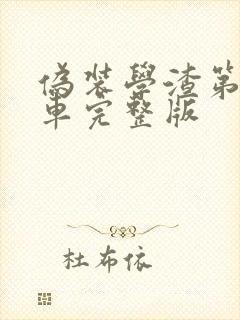 偽装學渣第
車完整版
杜布依